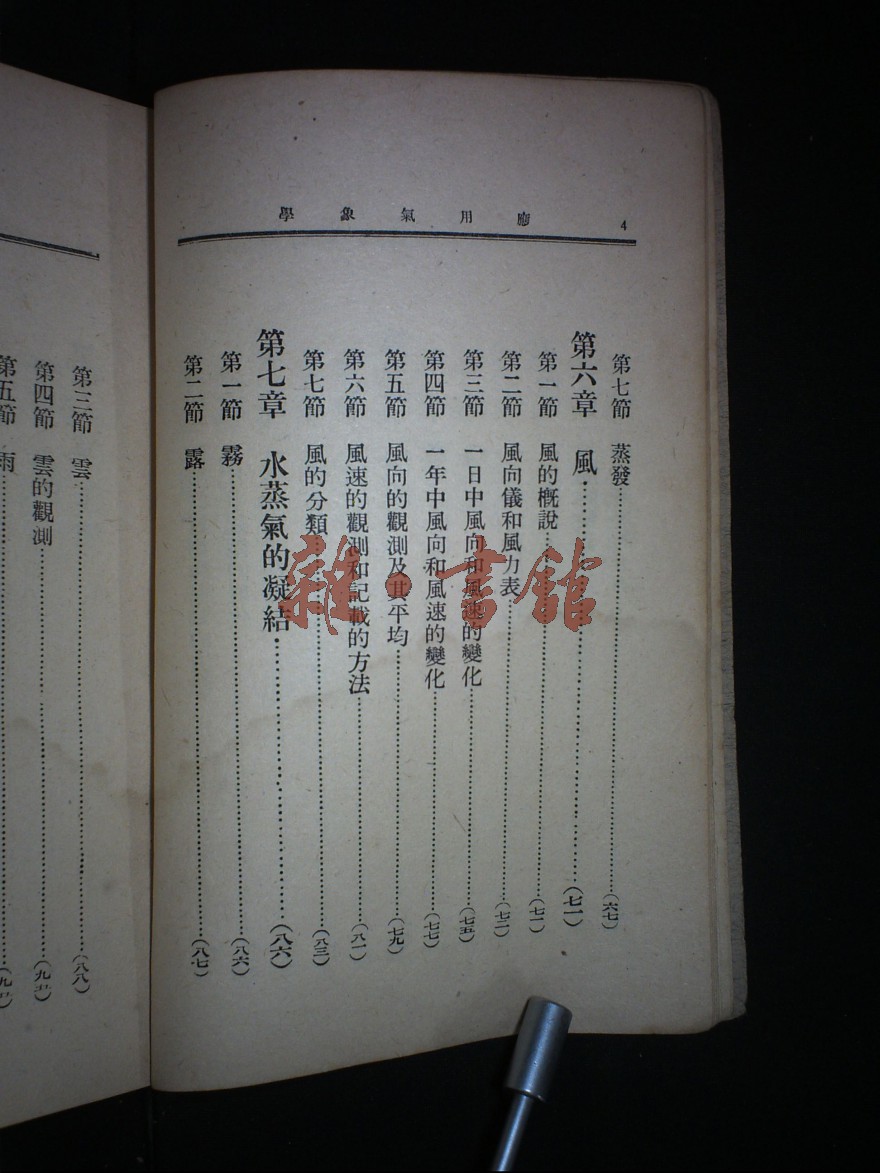 應用氣象學
4
第七節 蒸發……(六七)
第六章 風……(七一)
第一節 風的槪說……(七一)
第二節 風向儀和風力表……(七二)
第三節 一日中風向和風速的變化……(七五)
第四節 一年中風向和風速的變化……(七七)
第五節 風向的觀測及其平均……(七九)
第六節 風速的觀測和記載的方法……(八一)
第七節 風的分類……(八三)
第七章 水蒸氣的凝結……(八六)
第一節 霧……(八六)
第二節 露……(八七)
第三節 雲……(八八)
第四節 雲的觀測……(九五)
第五節 雨……
雜·書館